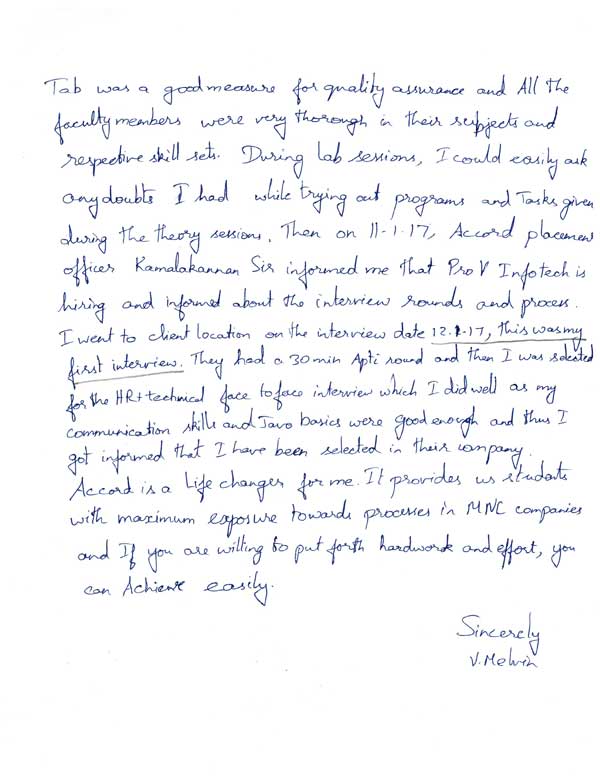 Tab was a good measure for quality assurance and All the
faculty members were very thorough in their subjects and
respective skill sets. During lab sessions, I could easily ask
any doubts I had while trying out programs and Tasks given
during the theory sessions. Then on 11-1-17, Accord placement
officer Kamalakannan Sir informed me that Pro V Infotech is
hiring and informed about the interview rounds and process.
I went to client location on the interview date 12.1-17, this was my
first interview. They had a 30 min Apti round and then I was selected
for the HR + technical face to face interview which I did well as my
communication skills and Java basics were good enough and thus I
got informed that I have been selected in their company.
Accord is a Life changer for me. It provides us students
with maximum exposure towards processes in MNC companies
and If you are willing to put forth hardwork and effort, you
can Achieve easily.
Sincerely
V. Melvin